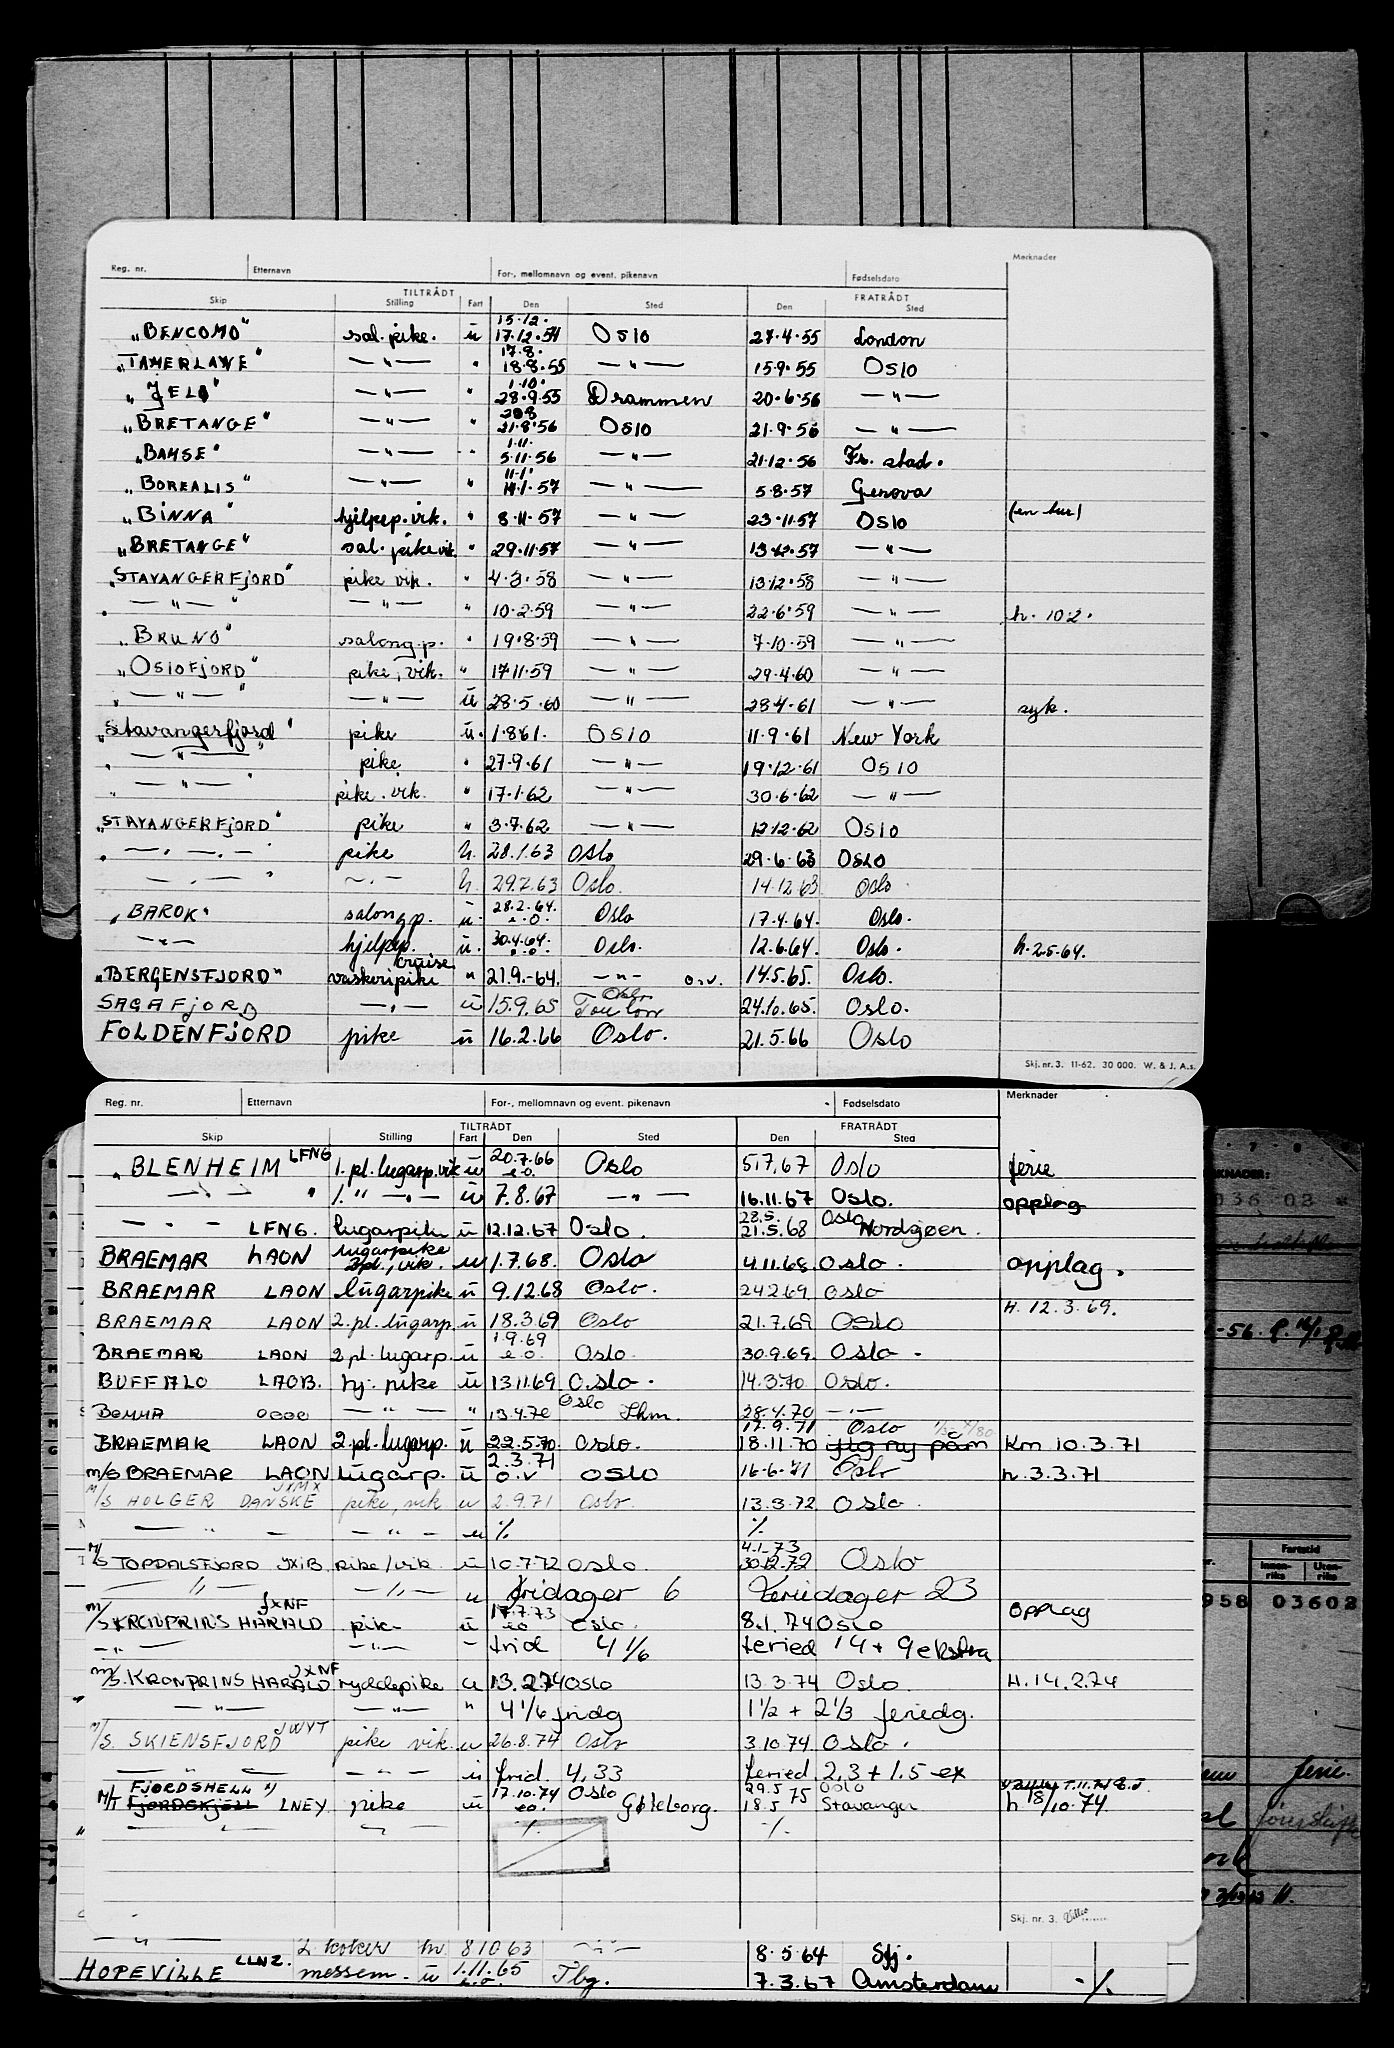 Reg. nr. Etternavn For-, mellomnavn og event. pikenavn Fødselsdato Merknader
TILTRÅDT FRATRÅDT
Skip Stilling Fart Den Sted Den Sted
15.12.
"BENCOMO" sal. pike. u 17.12.54 Oslo 27.4.55 London
17.8.
"TAMERLANE" —"— " 18.8.55 —"— 15.9.55 Oslo
1.10.
"JELØ" —"— " 28.9.55 Drammen 20.6.56 —"—
20.8
"BRETANGE" —"— " 21.8.56 Oslo 21.9.56 —"—
1.11.
"BAMSE" —"— " 5.11.56 —"— 21.12.56 Fr. stad.
11.1.
"BOREALIS" —"— " 14.1.57 —"— 5.8.57 Genova
"BINNA" hjelpep. vik. " 8.11.57 —"— 23.11.57 Oslo (en tur)
"BRETANGE" sal. pike vik. " 29.11.57 —"— 13.12.57 —"—
"STAVANGERFJORD" pike vik. " 4.3.58 —"— 13.12.58 —"—
—"— —"— " 10.2.59 —"— 22.6.59 —"— h. 10.2.
"BRUNO" salong.p. " 19.8.59 —"— 7.10.59 —"—
"OSLOFJORD" pike, vik. " 17.11.59 —"— 29.4.60 —"—
—"— —"— u 28.5.60 —"— 28.4.61 —"— syk.
"Stavangerfjord" pike u. 1.8.61. Oslo 11.9.61 New York
—"— pike " 27.9.61 —"— 19.12.61 Oslo
—"— pike. vik. " 17.1.62 —"— 30.6.62 —"—
"STAVANGERFJORD" pike " 3.7.62 —"— 12.12.62 Oslo
—"— pike u. 28.1.63 Oslo 29.6.63 Oslo
—"— —"— u. 29.7.63 Oslo. 14.12.63 Oslo
"BAROK" salong p. u. 28.2.64. e.o. Oslo 17.4.64. Oslo.
—"— hjelpep. u. 30.4.64. e.o. Oslo. 12.6.64. Oslo. h. 2.5.64.
cruise
"BERGENSFJORD" vaskeripike " 21.9.-64. —"— o.v. 14.5.65. Oslo.
Oslo
SAGAFJORD —"— u 15.9.65 Toulon 24.10.65. Oslo.
FOLDENFJORD pike u 16.2.66 Oslo. 21.5.66 Oslo
Skj. nr. 3. 11-62. 30 000. W. & J. A.s.
Reg. nr. Etternavn For-, mellomnavn og event. pikenavn Fødselsdato Merknader
TILTRÅDT FRATRÅDT
Skip Stilling Fart Den Sted Den Sted
"BLENHEIM LFNG 1. pl. lugarp. vik u 20.7.66 e.o. Oslo 5.7.67 Oslo ferie
—"— 1. " —"— u 7.8.67 —"— 16.11.67 Oslo. opplag
28.5. Oslo
—"— LFNG. lugarpike u 12.12.67 Oslo. 21.5.68 Nordsjøen.
lugarpike
BRAEMAR LAON 2pl., vik. u 1.7.68. Oslo 4.11.68. Oslo. opplag.
BRAEMAR LAON lugarpike u 9.12.68 Oslo. 24.2.69. Oslo
BRAEMAR LAON 2. pl. lugarp. u 18.3.69 Oslo 21.7.69 Oslo H. 12.3.69.
BRAEMAR LAON 2 pl. lugarp. u 1.9.69 e.o. Oslo. 30.9.69. Oslo.
BUFFALO LAOB. hj. pike u 13.11.69 Oslo. 14.3.70 Oslo.
—"— " 13.4.70 Oslo 28.4.70 —"—
17.9.71 Oslo
BRAEMAR LAON 2. pl. lugarp. u 22.5.70. Oslo. 18.11.70 Km 10.3.71
M/S BRAEMAR LAON lugarp. u 2.3.71 o.v Oslo 16.6.71 Oslo h. 3.3.71
JXMX
M/S HOLGER DANSKE pike, vik u 2.9.71 Oslo 13.3.72 Oslo.
—"— —"— u ./. ./.
4.1.73
M/S TOPDALSFJORD JXIB pike/vik u 10.7.72 Oslo. 30.12.72 Oslo
—"— —"— u fridager 6 Feriedager 23
JXNF
M/S KRONPRINS HARALD pike u 17.7.73 eo Oslo 8.1.74 Oslo opplag
—"— —"— - frid 4 1/6 feried 14 + 9 ekstra
JXNF
M/S. KRONPRINS HARALD ryddepike u 13.2.74 Oslo 13.3.74 Oslo. H. 14.2.74
—"— —"— " 4 1/6 fridg 1 1/2 + 2 1/3 feriedg.
JWYT
M/S. SKIENSFJORD pike vik. u 26.8.74 Oslo 3.10.74 Oslo.
—"— —"— u frid. 4,33 feried 2,3 + 1.5 ex
FJORDSHELL 17.10.74 Oslo 29.5.75 Oslo
M/T FJORDSKJELL LNEY pike u eo. Gøteborg. 18.5 Stavanger h 18/10.74
" —"— —"— ./. ./.
Skj. nr. 3.
—"— 2. kokk 8.10.63 —"— 8.5.64 Sfj.
HOPEVILLE LLNZ. messem. u 1.11.65 e.o. Tbg. 7.3.67 Amsterdam ./.
7 8
MERKNADER:
036 02
Fartstid
Innenriks Utenriks
958 03602
ferie.